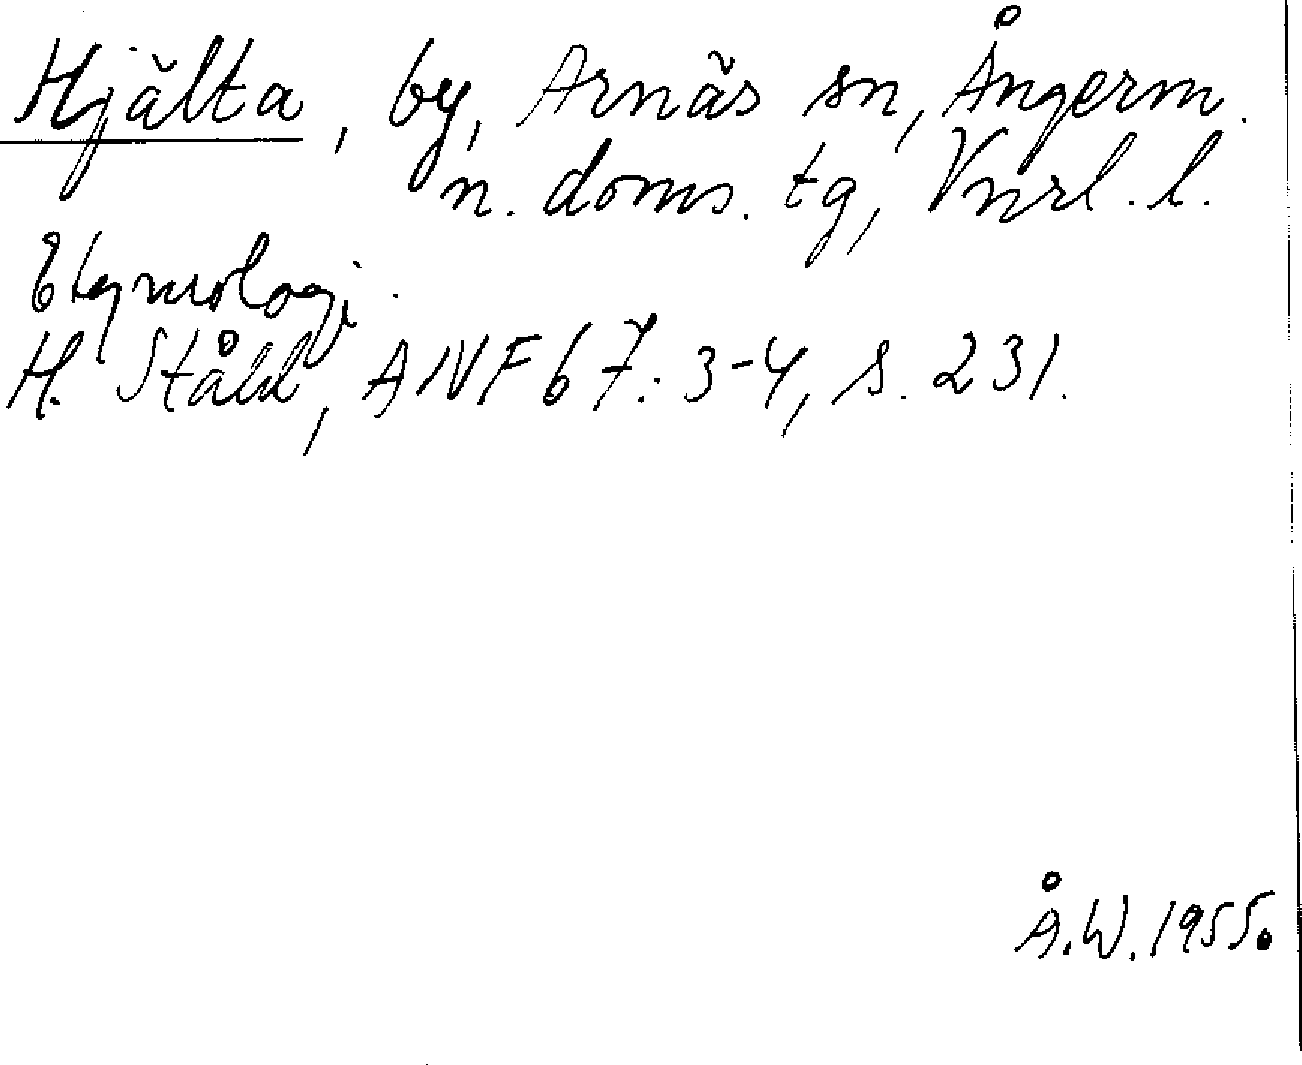 Hjälta, by, Arnäs sn, Ångerm.
n. doms. tg, Vnrl. l.
Etymologi.
H. Ståhl, ANF 67: 3-4, s. 231.
Å.W. 1955.